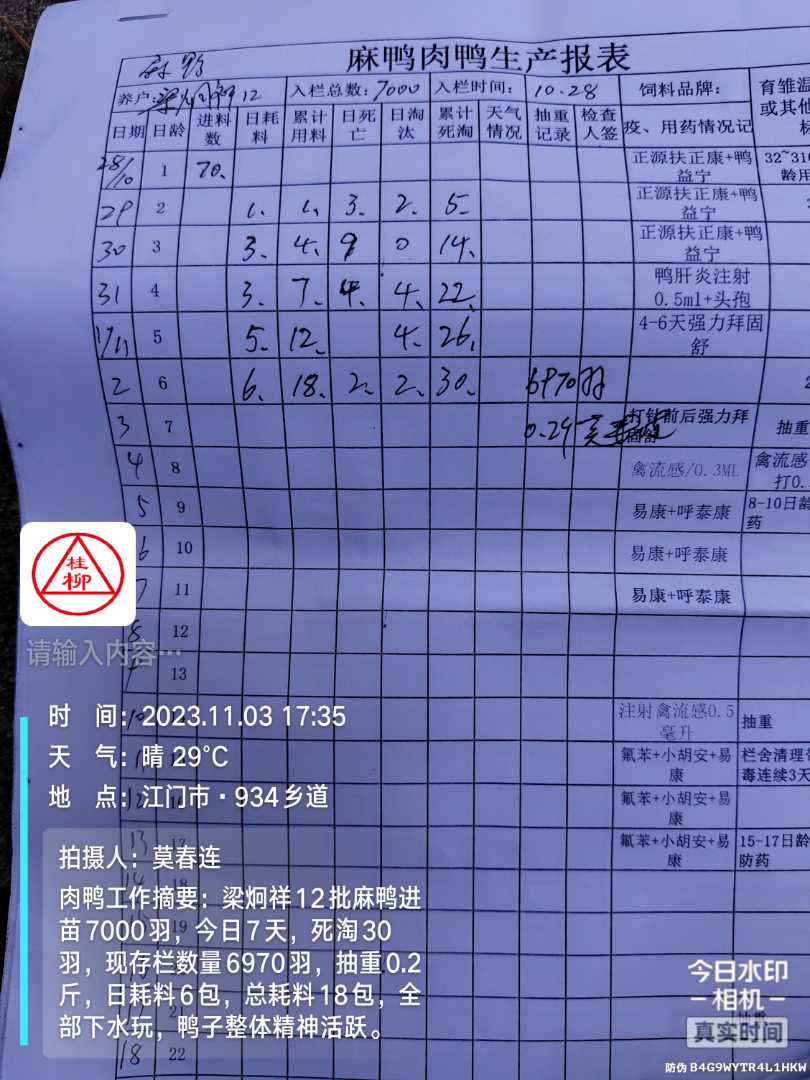 麻鸭
麻鸭肉鸭生产报表
养户:梁炯祥12 入栏总数:7000 入栏时间: 10.28 饲料品牌: 育雏温
或其他
日期 日龄 进料数 日耗料 累计用料 日死亡 日淘汰 累计死淘 天气情况 抽重记录 检查人签 疫、用药情况记
28/10 1 70. 正源扶正康+鸭益宁 32~31
龄用
29 2 1. 1. 3. 2. 5. 正源扶正康+鸭益宁
30 3 3. 4. 9 0 14. 正源扶正康+鸭益宁
31 4 3. 7. 4. 4. 22. 鸭肝炎注射0.5ml+头孢
1/11 5 5. 12. 4. 26. 4-6天强力拜固舒
2 6 6. 18. 2. 2. 30. 6970羽
3 7 0.29 打针前后强力拜固舒 抽重
4 8 禽流感/0.3ML 禽流感
打0.
5 9 易康+呼泰康 8-10日龄
药
6 10 易康+呼泰康
7 11 易康+呼泰康
8 12
13
10 注射禽流感0.5毫升 抽重
氟苯+小胡安+易康 栏舍清理
毒连续3天
12 氟苯+小胡安+易康
13 氟苯+小胡安+易康 15-17日龄
防药
14 18
19
21
18 22
桂
柳
请输入内容…
时 间: 2023.11.03 17:35
天 气: 晴 29°C
地 点: 江门市·934乡道
拍摄人: 莫春连
肉鸭工作摘要: 梁炯祥12批麻鸭进
苗7000羽, 今日7天, 死淘30
羽, 现存栏数量6970羽, 抽重0.2
斤, 日耗料6包, 总耗料18包, 全
部下水玩, 鸭子整体精神活跃。
今日水印
-相机-
真实时间
防伪 B4G9WYTR4L1HKW